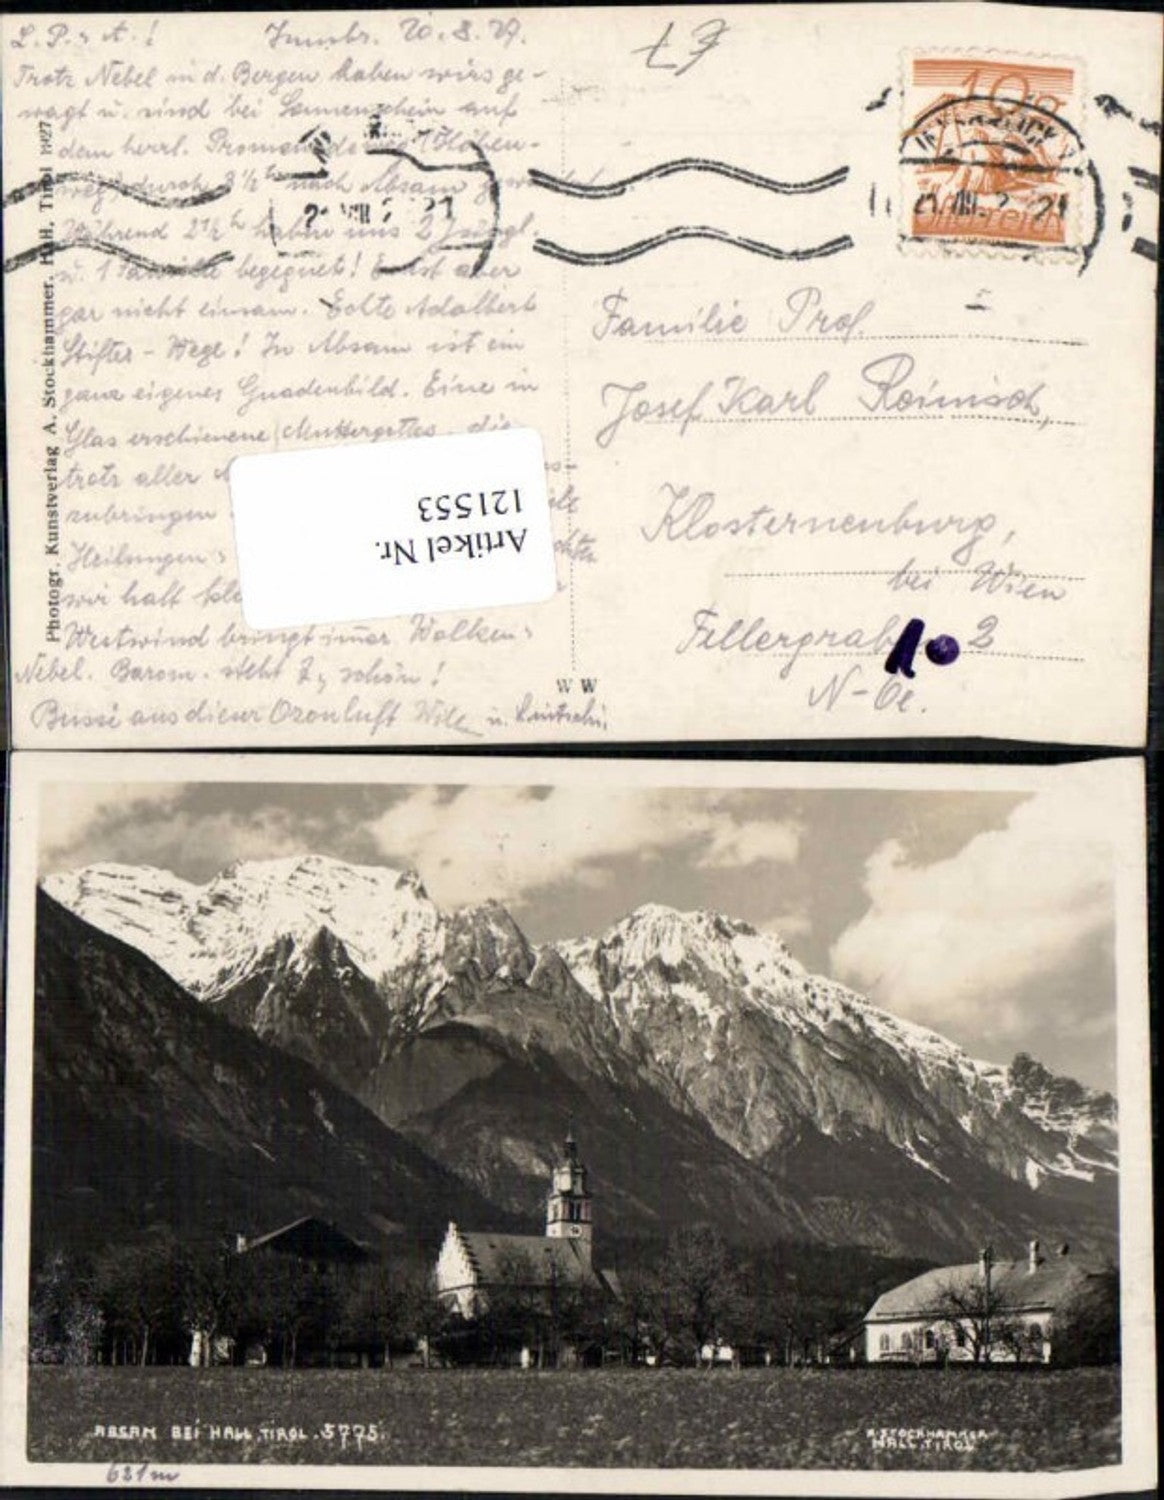 L. P. u. A.! Innsbr. 20.8.27.
Trotz Nebel in d. Bergen haben wirs ge-
wagt u. sind bei Sonnenschein auf
dem herrl. Promenadeweg (Höhen-
weg) durch 3 1/2 h nach Absam
Während 2 1/2 h haben uns 2
u. 1 Familie begegnet! aber
gar nicht einsam. Echte Adalbert
Stifter - Wege! In Absam ist ein
ganz eigenes Gnadenbild. Eine in
Glas erschienene Muttergottes, die
trotz aller
zubringen
Heilungen
wir halt
Westwind bringt immer Wolken u.
Nebel. Barom. steht schön!
Bussi aus dieser Ozonluft
Photogr. Kunstverlag A. Stockhammer, Hall, Tirol 1927
Artikel Nr.
121553
W W
10g
Österreich
Familie Prof.
Josef Karl Reinisch,
Klosterneuburg,
bei Wien
2
N-Oe.
ABSAM BEI HALL, TIROL. 5775.
A. STOCKHAMMER
HALL. TIROL
621m